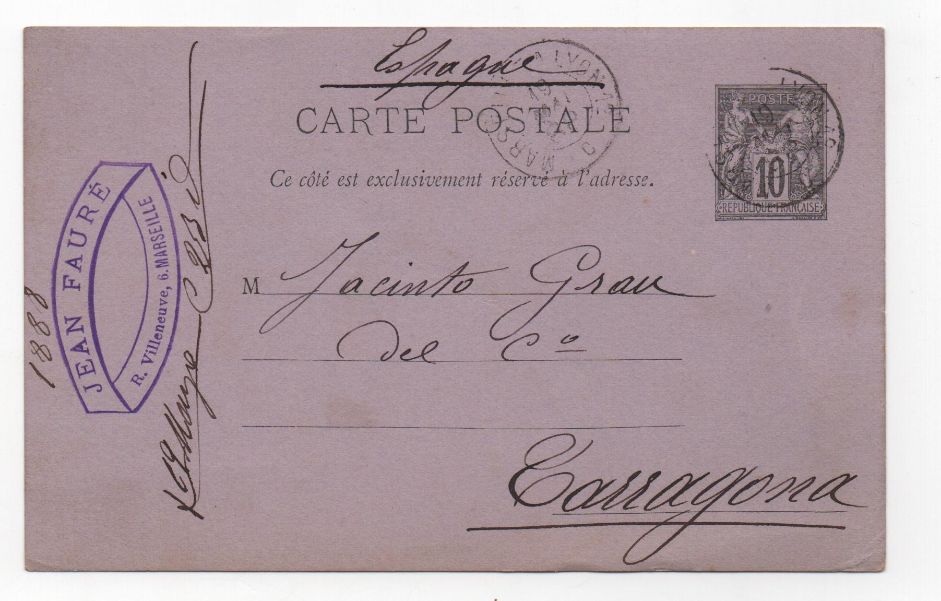 Espagne
CARTE POSTALE
Ce côté est exclusivement réservé à l'adresse.
POSTE
10
REPUBLIQUE FRANÇAISE
MARSEILLE A LYON
19
M Jacinto Grau
del Cº
Tarragona
JEAN FAURÉ
R. Villeneuve, 6. MARSEILLE
1888